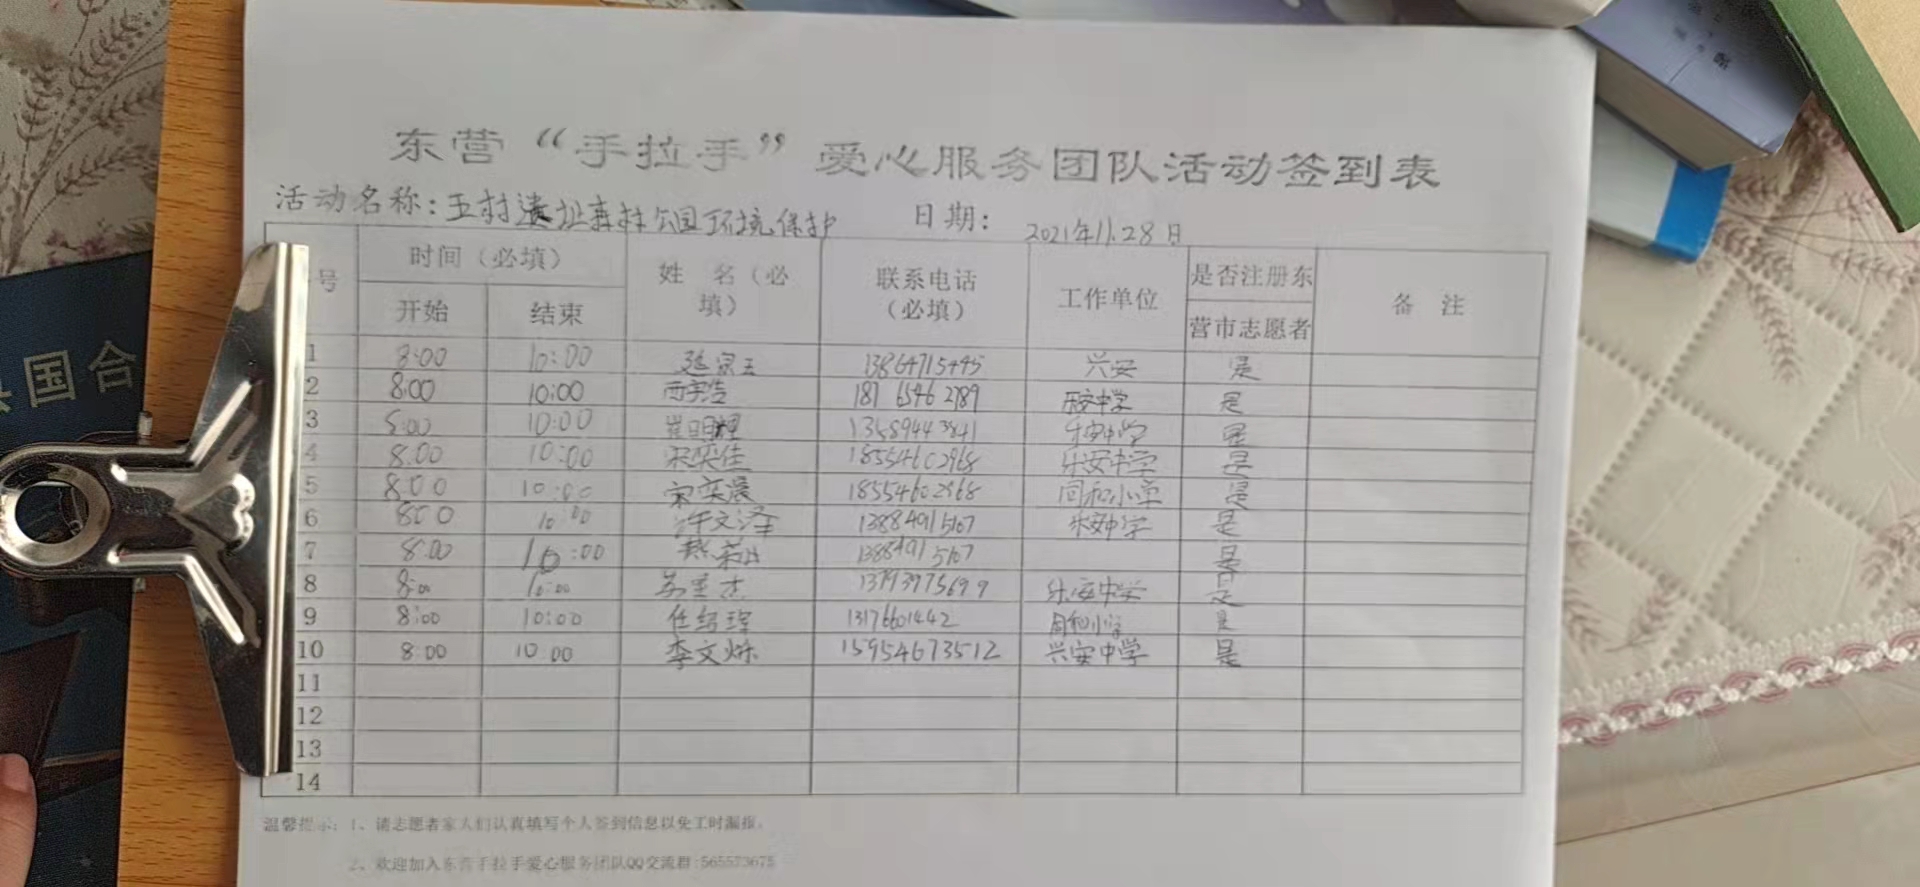 东营“手拉手”爱心服务团队活动签到表
活动名称：五村遗址森林公园环境保护 日期： 2021年11.28日
号 时间（必填） 姓 名（必填） 联系电话（必填） 工作单位 是否注册东营市志愿者 备 注
开始 结束
1 8:00 10:00 13864715445 兴安 是
2 8:00 10:00 中学 是
3 8:00 10:00 13589443841 乐安中学 是
4 8:00 10:00 宋奕佳 18554602968 乐安中学 是
5 8:00 10:00 宋奕宸 18554602968 同和小学 是
6 8:00 10:00 许文泽 13884915167 乐安中学 是
7 8:00 10:00 13884915167 是
8 8:00 10:00 13793975699 乐安中学 是
9 8:00 10:00 13176601442 同和小学 是
10 8:00 10:00 李文烁 15954673512 兴安中学 是
11
12
13
14
温馨提示：1、请志愿者家人们认真填写个人签到信息以免工时漏报。
2、欢迎加入东营手拉手爱心服务团队QQ交流群:565573675
国合